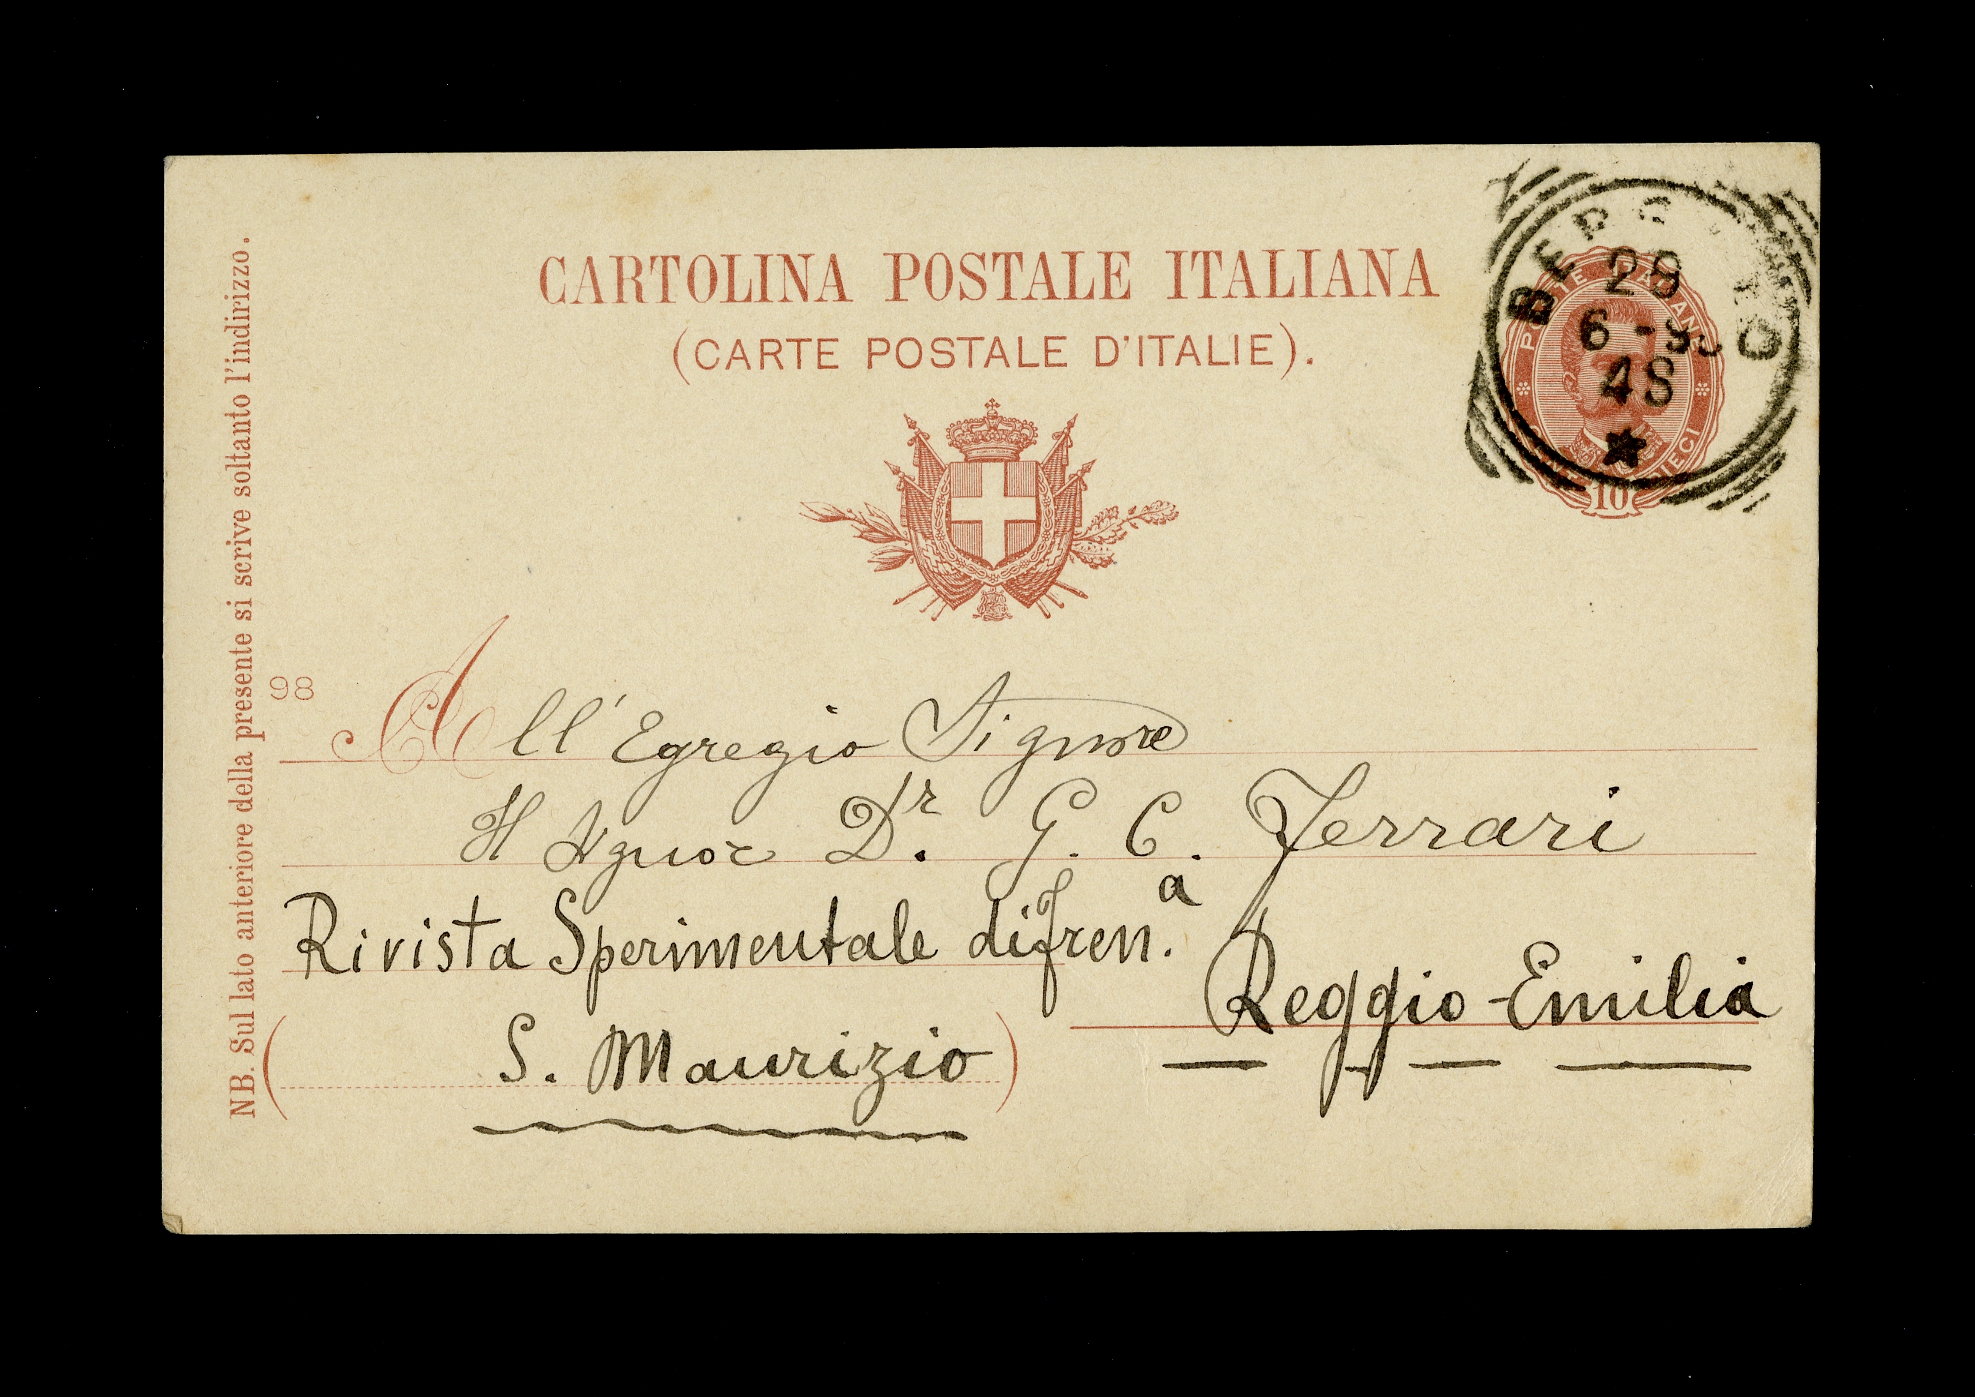 CARTOLINA POSTALE ITALIANA
(CARTE POSTALE D'ITALIE).
28
6 - 9
4S
10
NB. Sul lato anteriore della presente si scrive soltanto l'indirizzo.
98
All' Egregio Signore
Il Signor Dr. G. C. Ferrari
Rivista Sperimentale di fren.a
Reggio-Emilia
(S. Maurizio)